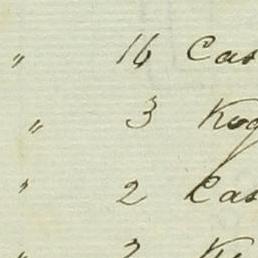 " 16 Cas
" 3 Keg
" 2 Cas
" 2